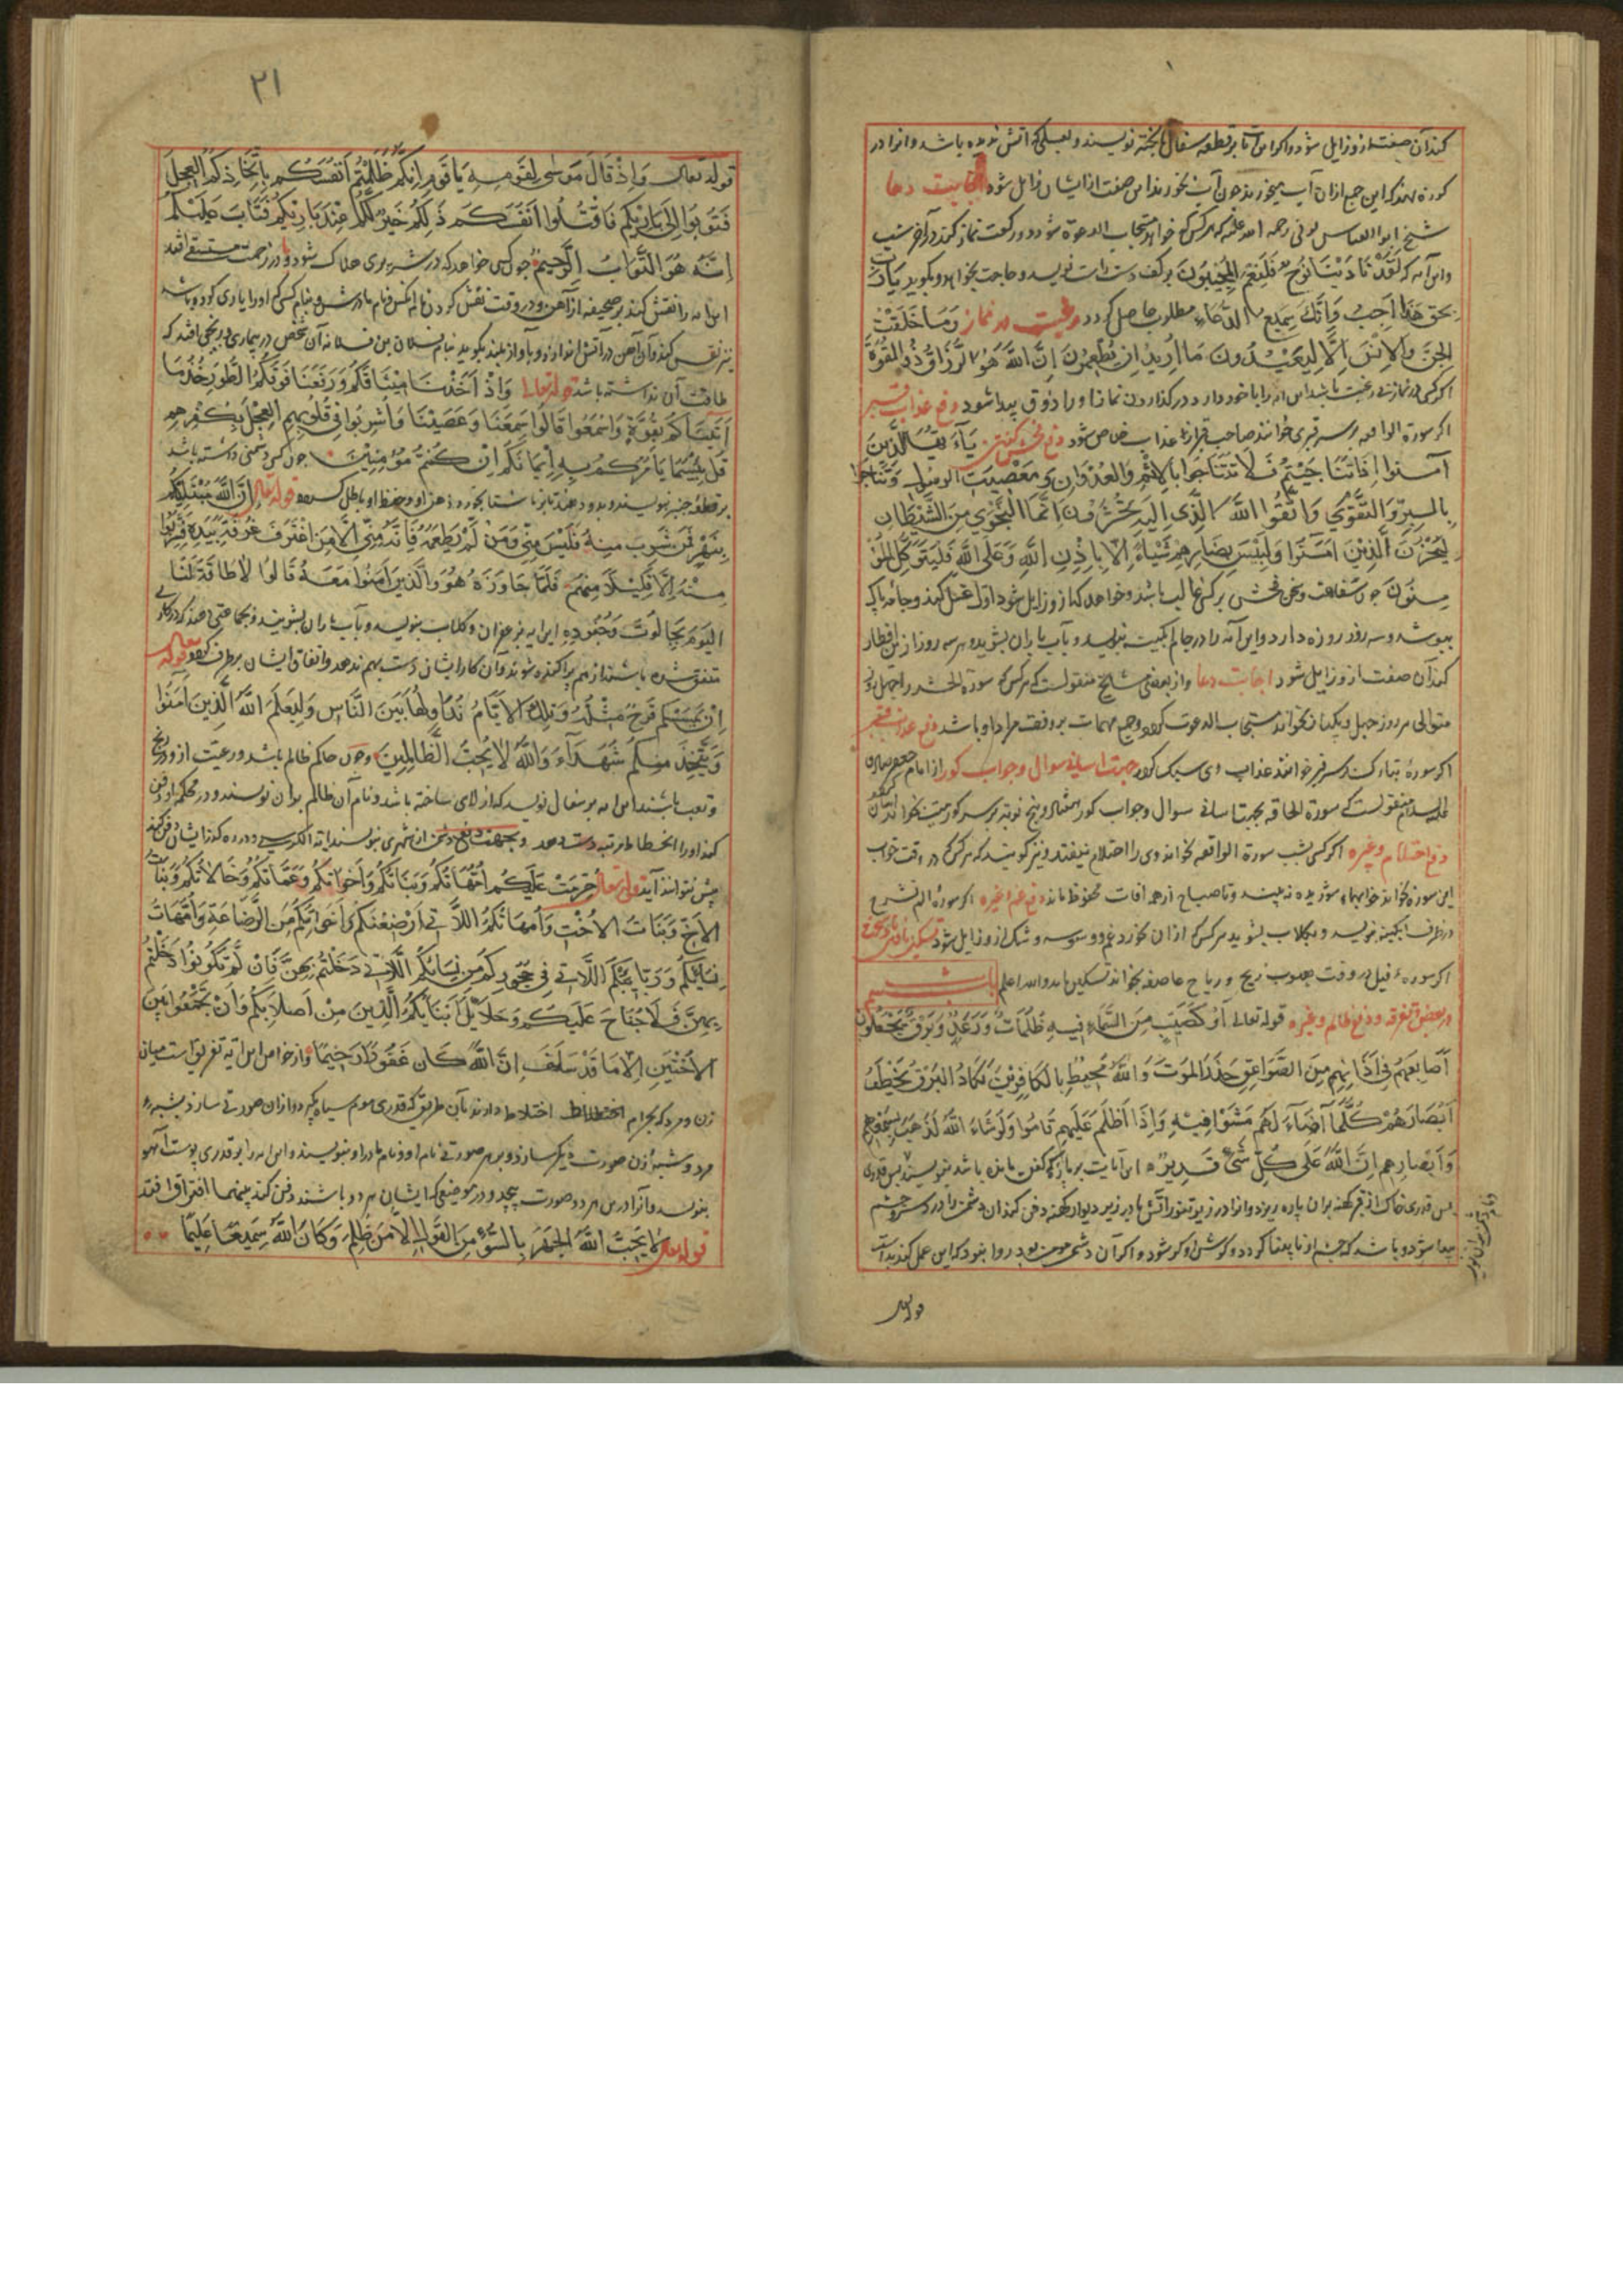 کند آن صفت از و زایل شود و اگر این آیه بر قطعه سفال پخته نویسند و باشد و انرا در
کوزه نهد که این جمع از ان آب میخورند چون آب بخورند این صفت از ایشان زایل شود اجابت دعا
شیخ ابوالعباس بونی رحمه الله علیه که هر کس که خواهد مستجاب الدعوة شود دو رکعت نماز کند در آخر شب
و این آیه که لَقَدْ نَادَيْنَا نُوحٌ فَلَنِعْمَ الْمُجِيبُونَ بر کف دست راست نویسد و حاجت بخواهد و بگوید یا رب
بحق هَذَا أَجِبْ فَإِنَّكَ سَمِيعُ الدُّعَاءِ مطلوب حاصل گردد رغبت در نماز وَمَا خَلَقْتُ
الْجِنَّ وَالْإِنْسَ إِلَّا لِيَعْبُدُونِ مَا أُرِيدُ اَنْ يُطْعِمُونِ إِنَّ اللَّهَ هُوَ الرَّزَّاقُ ذُو الْقُوَّةِ
اگر کسی در نماز بی رغبت باشد این آیه را با خود دارد در گذاردن نماز او را ذوق پیدا شود دفع عذاب قبر
اگر سورة الواقعه بر سر قبری خوانند صاحب قبر از عذاب خلاص شود دفع فحش گفتن يَا أَيُّهَا الَّذِينَ
آمَنُوا إِذَا تَنَاجَيْتُمْ فَلَا تَتَنَاجَوْا بِالْإِثْمِ وَالْعُدْوَانِ وَمَعْصِيَتِ الرَّسُولِ وَتَنَاجَوْا
بِالْبِرِّ وَالتَّقْوَى وَاتَّقُوا اللَّهَ الَّذِي إِلَيْهِ تُحْشَرُونَ إِنَّمَا النَّجْوَى مِنَ الشَّيْطَانِ
لِيَحْزُنَ الَّذِينَ آمَنُوا وَلَيْسَ بِضَارِّهِمْ شَيْئًا إِلَّا بِإِذْنِ اللَّهِ وَعَلَى اللَّهِ فَلْيَتَوَكَّلِ الْمُؤْ
مِنُونَ چون سفاهت و سخن فحش بر کسی غالب باشد و خواهد که از و زایل شود اول غسل کند و جامه پاک
بپوشد و سه روز روزه دارد و این آیه را در جام آبگینه نویسد و بآب باران بشوید و هر سه روز از آن افطار
کند آن صفت از و زایل شود اجابت دعا و از بعضی مشایخ منقولست که هر کس که سورة الحشر را چهل روز
متوالی هر روز چهل و یکبار بخواند مستجاب الدعوت گردد و جمیع مهمات بر وفق مراد او باشد دفع عذاب قبر
اگر سوره تبارک بر سر قبر خوانند عذاب وی سبک گردد جهت اسانی سوال و جواب گور از امام جعفر صادق
علیه السلام منقولست که سورة الحاقه بجهت اسانی سوال و جواب گور و پنج نوبت بر سر گور میت بخوانند
دفع احتلام و غیره اگر کسی شب سورة الواقعه بخواند وی را احتلام نیفتد و نیز گویند که هر کس در وقت خواب
این سوره بخواند خوابهای شوریده نه بیند و تا صباح از همه افات محفوظ ماند دفع غم و غیره اگر سوره الم نشرح
در ظرف آبگینه نویسد و بگلاب بشوید هر کس که از ان خورد غم و وسوسه و شک از و زایل شود تسکین باد سخت
اگر سوره فیل در وقت هبوب ریح و ریاح عاصفه بخواند تسکین یابد والله اعلم باب ششم
در بغض و تفرقه و دفع ظالم و غیره قوله تعالی أَوْ كَصَيِّبٍ مِنَ السَّمَاءِ فِيهِ ظُلُمَاتٌ وَرَعْدٌ وَبَرْقٌ يَجْعَلُونَ
أَصَابِعَهُمْ فِي آذَانِهِمْ مِنَ الصَّوَاعِقِ حَذَرَ الْمَوْتِ وَاللَّهُ مُحِيطٌ بِالْكَافِرِينَ يَكَادُ الْبَرْقُ يَخْطَفُ
أَبْصَارَهُمْ كُلَّمَا أَضَاءَ لَهُمْ مَشَوْا فِيهِ وَإِذَا أَظْلَمَ عَلَيْهِمْ قَامُوا وَلَوْ شَاءَ اللَّهُ لَذَهَبَ بِسَمْعِهِمْ
وَأَبْصَارِهِمْ إِنَّ اللَّهَ عَلَى كُلِّ شَيْءٍ قَدِيرٌ این آیات بر پارهٔ کفن مانده باشد بنویسند پس قدری
پس قدری خاک از قبر کهنه بران پاره ریزد و انرا در زیر تنور آتش یا در زیر دیوار کهنه دفن کند ان دشمن را درد سر و چشم
پیدا شود و باشد که چشم او نابینا گردد و گوش او کر شود و اگر آن دشمن مومن بود روا نبود که این عمل کند
قوله تعالی
۲۱
قوله تعالی وَإِذْ قَالَ مُوسَى لِقَوْمِهِ يَا قَوْمِ إِنَّكُمْ ظَلَمْتُمْ أَنْفُسَكُمْ بِاتِّخَاذِكُمُ الْعِجْلَ
فَتُوبُوا إِلَى بَارِئِكُمْ فَاقْتُلُوا أَنْفُسَكُمْ ذَلِكُمْ خَيْرٌ لَكُمْ عِنْدَ بَارِئِكُمْ فَتَابَ عَلَيْكُمْ
إِنَّهُ هُوَ التَّوَّابُ الرَّحِيمُ چون کسی خواهد که در شریری هلاک شود و یا در زحمت افتد
این آیه را نقش کند بر صحیفه از آهن و در وقت نقش کردن نام انکس و نام مادرش و نام کسی که او را یاری کرده باشد
نیز نقش کند و آن آهن در آتش اندازد و بآواز بلند بگوید بنام فلان بن فلانه آن شخص در بیماری و رنجی افتد که
طاقت آن نداشته باشد قوله تعالی وَإِذْ أَخَذْنَا مِيثَاقَكُمْ وَرَفَعْنَا فَوْقَكُمُ الطُّورَ خُذُوا مَا
آتَيْنَاكُمْ بِقُوَّةٍ وَاسْمَعُوا قَالُوا سَمِعْنَا وَعَصَيْنَا وَأُشْرِبُوا فِي قُلُوبِهِمُ الْعِجْلَ بِكُفْرِهِمْ
قُلْ بِئْسَمَا يَأْمُرُكُمْ بِهِ إِيمَانُكُمْ إِنْ كُنْتُمْ مُؤْمِنِينَ چون کسی دشمنی داشته باشد
بر قطعه نویسند و بدو دهند تا بناشتا بخورد ذهن او و حفظ او باطل گردد قوله تعالی إِنَّ اللَّهَ مُبْتَلِيكُمْ
بِنَهَرٍ فَمَنْ شَرِبَ مِنْهُ فَلَيْسَ مِنِّي وَمَنْ لَمْ يَطْعَمْهُ فَإِنَّهُ مِنِّي إِلَّا مَنِ اغْتَرَفَ غُرْفَةً بِيَدِهِ فَشَرِبُوا
مِنْهُ إِلَّا قَلِيلًا مِنْهُمْ فَلَمَّا جَاوَزَهُ هُوَ وَالَّذِينَ آمَنُوا مَعَهُ قَالُوا لَا طَاقَةَ لَنَا
الْيَوْمَ بِجَالُوتَ وَجُنُودِهِ این آیه بزعفران و گلاب بنویسد و بآب باران بشویند و بجماعتی دهند که در کاری
متفق شده باشند از هم پراکنده شوند و ان کار ایشان دست بهم ندهد و اتفاق ایشان بر طرف گردد قوله تعالی
إِنْ يَمْسَسْكُمْ قَرْحٌ مِثْلُهُ وَتِلْكَ الْأَيَّامُ نُدَاوِلُهَا بَيْنَ النَّاسِ وَلِيَعْلَمَ اللَّهُ الَّذِينَ آمَنُوا
وَيَتَّخِذَ مِنْكُمْ شُهَدَاءَ وَاللَّهُ لَا يُحِبُّ الظَّالِمِينَ و چون حاکم ظالم باشد و رعیت از و در رنج
و تعب باشند این آیه بر سفال نویسد که از لای ساخته باشد و نام آن ظالم بران نویسند و در محکمه او دفن
کند او را انحطاط مرتبه دست دهد و بجهت دفع دشمن از شهری بنویسد آیة الکرسی و در ره گذر ایشان دفن کند
پیش نتوانند آید قوله تعالی حُرِّمَتْ عَلَيْكُمْ أُمَّهَاتُكُمْ وَبَنَاتُكُمْ وَأَخَوَاتُكُمْ وَعَمَّاتُكُمْ وَخَالَاتُكُمْ وَبَنَاتُ
الْأَخِ وَبَنَاتُ الْأُخْتِ وَأُمَّهَاتُكُمُ اللَّاتِي أَرْضَعْنَكُمْ وَأَخَوَاتُكُمْ مِنَ الرَّضَاعَةِ وَأُمَّهَاتُ
نِسَائِكُمْ وَرَبَائِبُكُمُ اللَّاتِي فِي حُجُورِكُمْ مِنْ نِسَائِكُمُ اللَّاتِي دَخَلْتُمْ بِهِنَّ فَإِنْ لَمْ تَكُونُوا دَخَلْتُمْ
بِهِنَّ فَلَا جُنَاحَ عَلَيْكُمْ وَحَلَائِلُ أَبْنَائِكُمُ الَّذِينَ مِنْ أَصْلَابِكُمْ وَأَنْ تَجْمَعُوا بَيْنَ
الْأُخْتَيْنِ إِلَّا مَا قَدْ سَلَفَ إِنَّ اللَّهَ كَانَ غَفُورًا رَحِيمًا و از خواص این آیه تفریق است میان
زن و مرد که بحرام اختلاط دارند بآن طریق که قدری موم سیاه بگیرد و ازان صورتی سازد بشبیه
مرد و شبیه زن صورت دیگر سازد و بر هر صورتی نام او و نام مادر او بنویسند و این آیه را بر قدری پوست آهو
بنویسد و آنرا در میان هر دو صورت پیچد و در موضعی که ایشان هر دو باشند دفن کند بینهما افتراق افتد
قوله تعالی لَا يُحِبُّ اللَّهُ الْجَهْرَ بِالسُّوءِ مِنَ الْقَوْلِ إِلَّا مَنْ ظُلِمَ وَكَانَ اللَّهُ سَمِيعًا عَلِيمًا